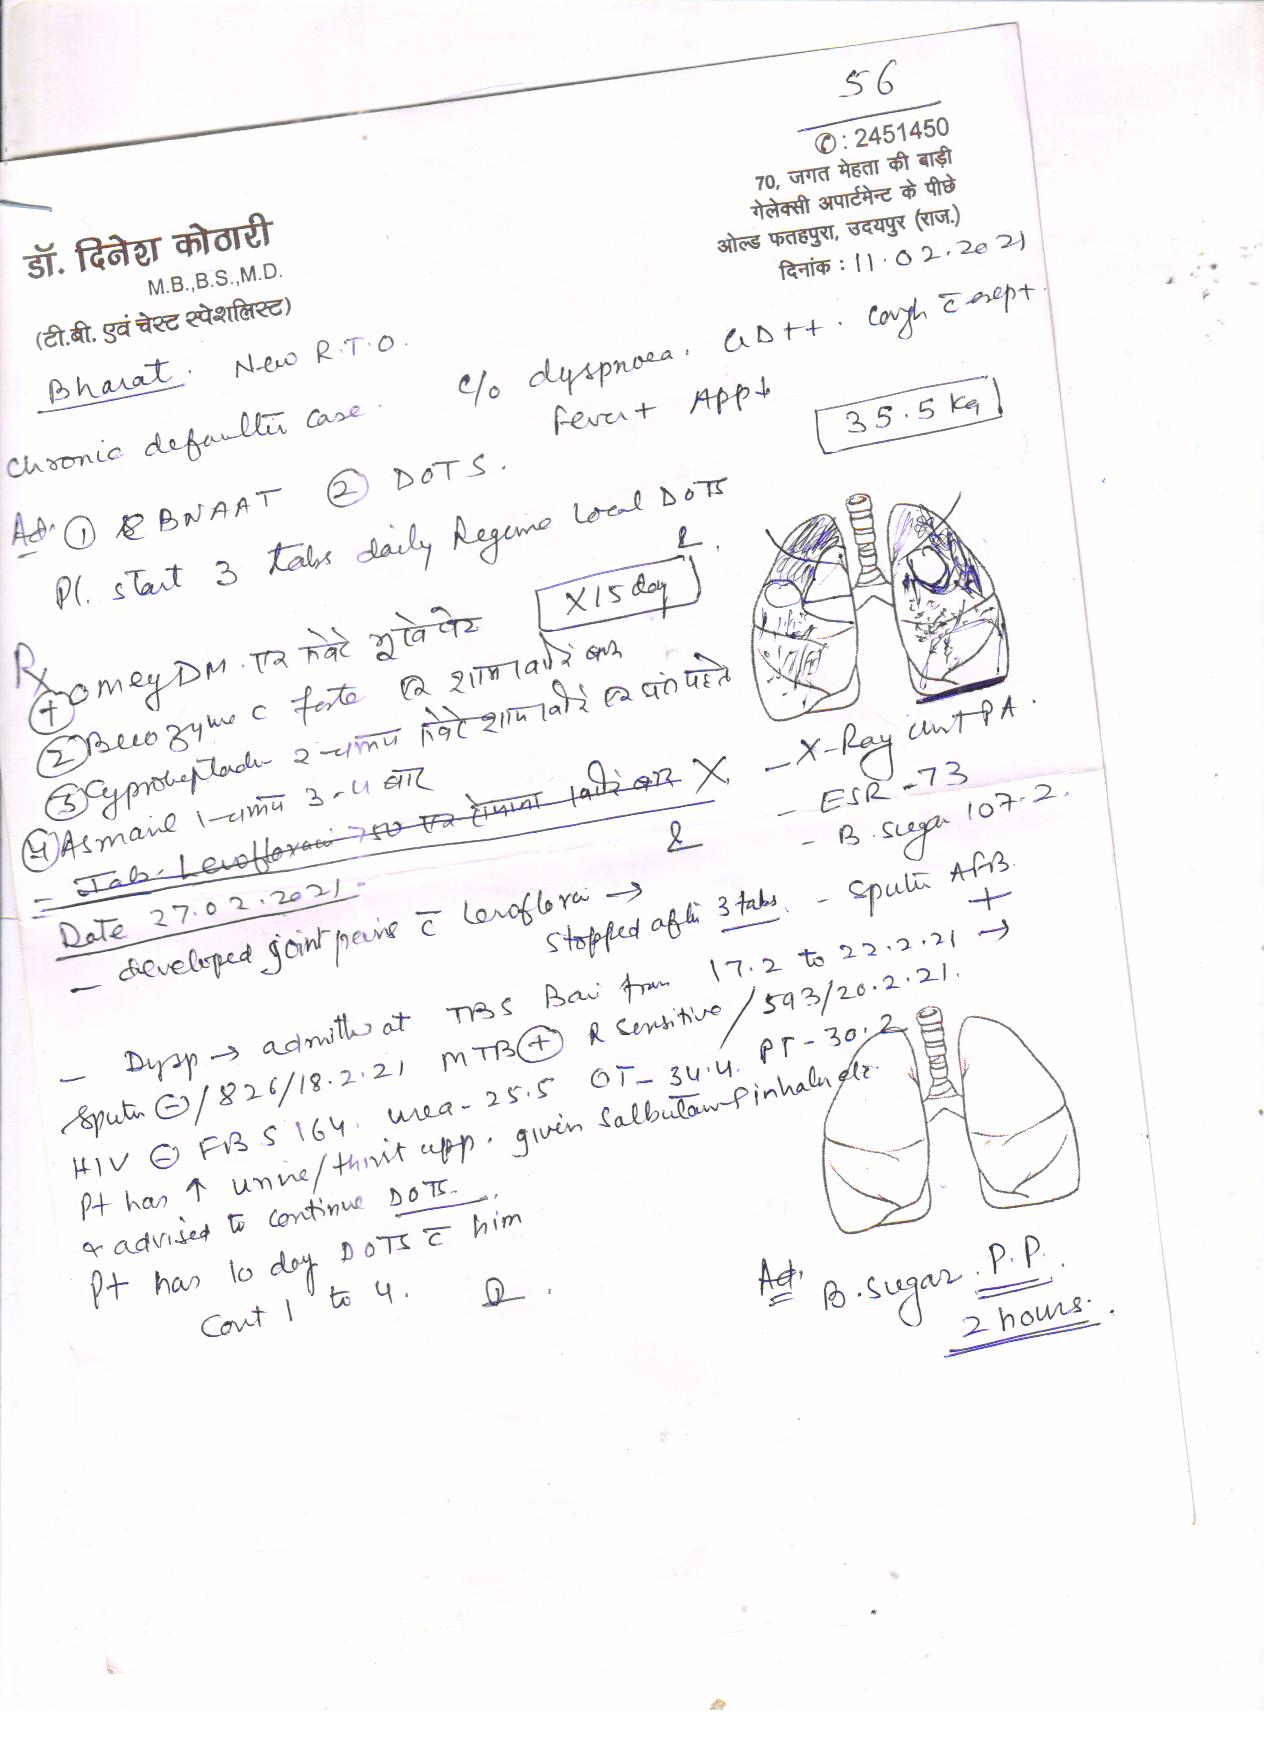 56
✆: 2451450
70, जगत मेहता की बाड़ी
गेलेक्सी अपार्टमेन्ट के पीछे
ओल्ड फतहपुरा, उदयपुर (राज.)
दिनांक : 11.02.2021
डॉ. दिनेश कोठारी
M.B.,B.S.,M.D.
(टी.बी. एवं चेस्ट स्पेशलिस्ट)
Bharat. New R.T.O.
Chronic defaulter case. c/o dyspnoea. GD++. Cough c̄ exept.
Fever+ App↓
35.5 Kg
Ad. ① BNAAT ② DOTS.
Pl. start 3 tabs daily Regime local DOTS
X 15 day
Rx
① Omez DM. एक भूखे पेट
② Becozyme C forte एक शाम खाने बाद
③ Cyproheptadi 2 चम्मच शाम खाने पहले
④ Asmanil 1 चम्मच 3-4 बार
Tab. Levofloxaci 750 एक रोजाना खाने बाद X
- X-Ray chest PA.
- ESR - 73
- B. sugar 107.2.
- Sputum AFB
+
Date 27.02.2021
- developed joint pains c̄ levofloxa → Stopped after 3 tabs.
- Dysp → admitted at TBS Bari from 17.2 to 22.2.21 →
Sputum ⊖/826/18.2.21 MTB⊕ R Sensitive/593/20.2.21.
HIV ⊖ FBS 164. urea-25.5 OT-34.4. PT-30.2
Pt has ↑ urine/thirst app. given Salbutamol inhaler etc.
& advised to continue DOTS.
Pt has 10 day DOTS c̄ him
Cont 1 to 4.
Ad. B. Sugar. P.P.
2 hours.